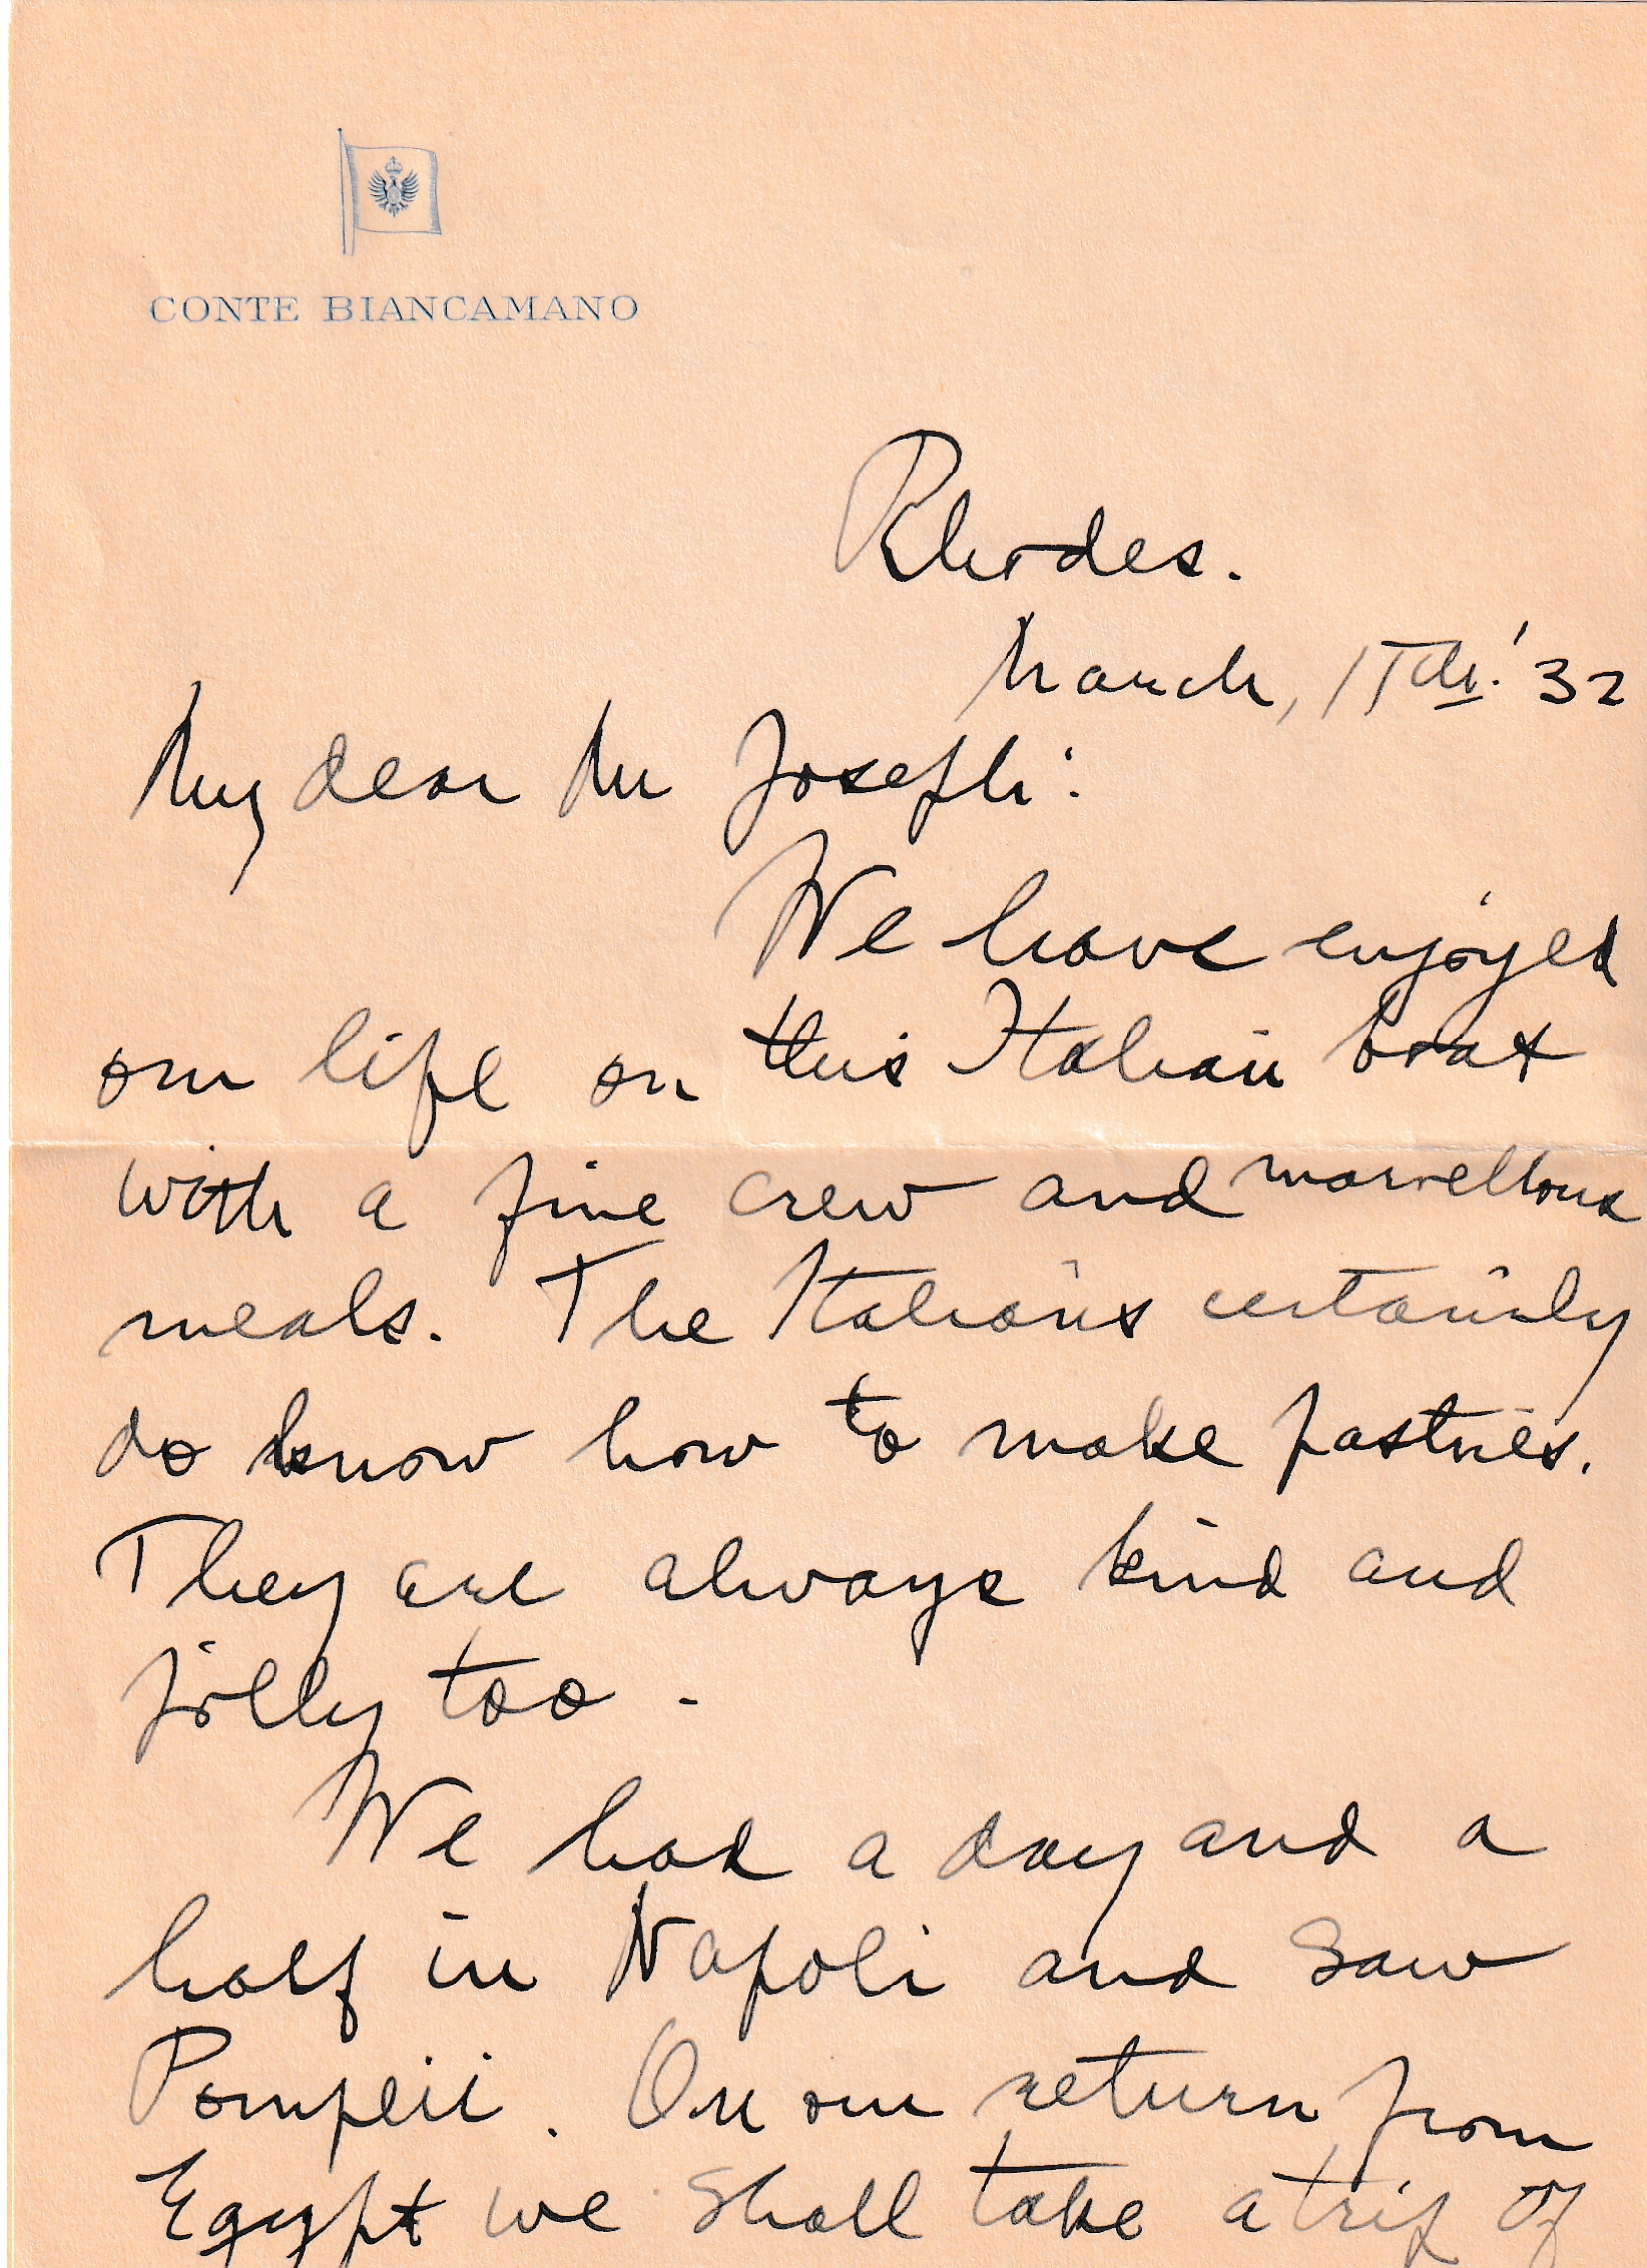 CONTE BIANCAMANO
Rhodes.
March, 15th. '32
My dear Mr Joseph:
We have enjoyed
our life on this Italian boat
with a fine crew and marvellous
meals. The Italians certainly
do know how to make pastries.
They are always kind and
jolly too -
We had a day and a
half in Napoli and saw
Pompeii. On our return from
Egypt we shall take a trip of